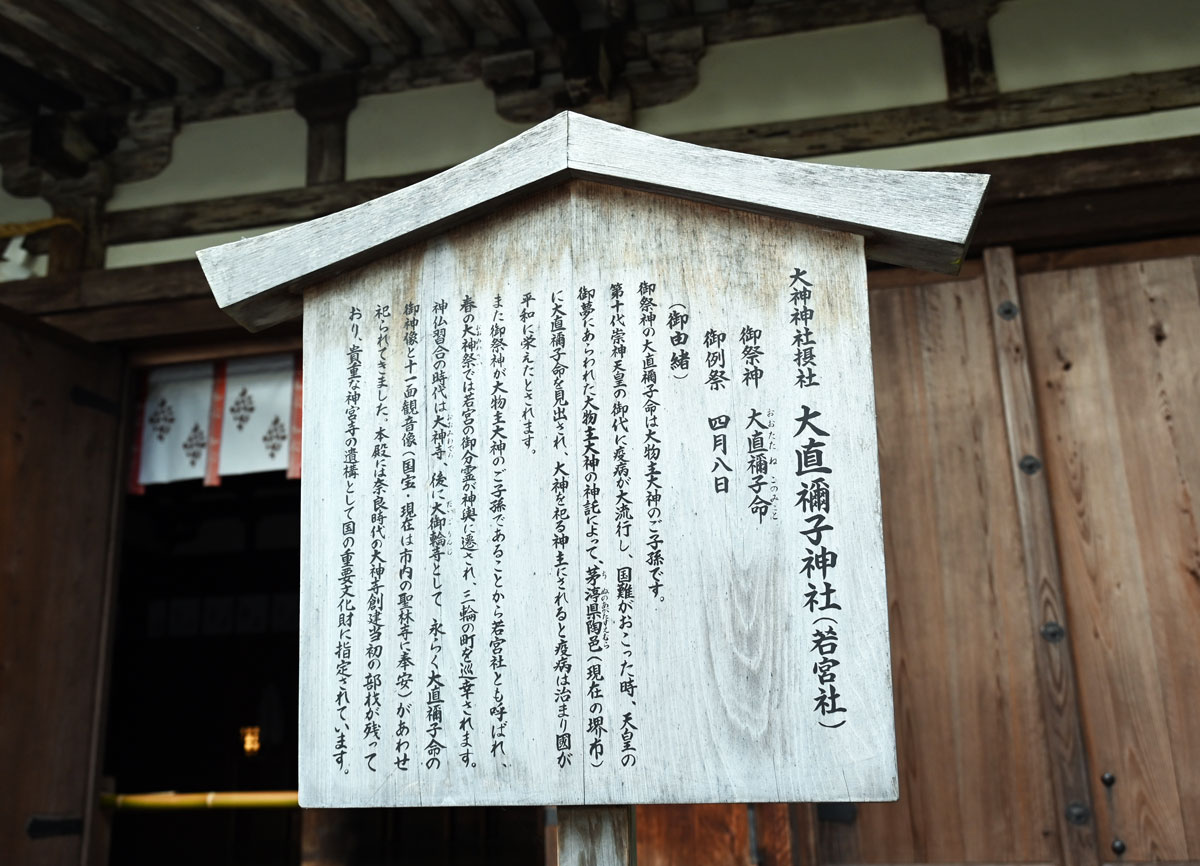 大神神社摂社 大直禰子神社(若宮社)
御祭神 大直禰子命
おおたたねこのみこと
御例祭 四月八日
(御由緒)
御祭神の大直禰子命は大物主大神のご子孫です。
第十代崇神天皇の御代に疫病が大流行し、国難がおこった時、天皇の
御夢にあらわれた大物主大神の神託によって、茅渟県陶邑(現在の堺市)
ちぬのあがたすえむら
に大直禰子命を見出され、大神を祀る神主にされると疫病は治まり國が
平和に栄えたとされます。
また御祭神が大物主大神のご子孫であることから若宮社とも呼ばれ、
春の大神祭では若宮の御分霊が神輿に遷され、三輪の町を巡幸されます。
神仏習合の時代は大神寺、後に大御輪寺として永らく大直禰子命の
おおみわでら だいごりんじ
御神像と十一面観音像(国宝・現在は市内の聖林寺に奉安)があわせ
祀られてきました。本殿には奈良時代の大神寺創建当初の部材が残って
おり、貴重な神宮寺の遺構として国の重要文化財に指定されています。